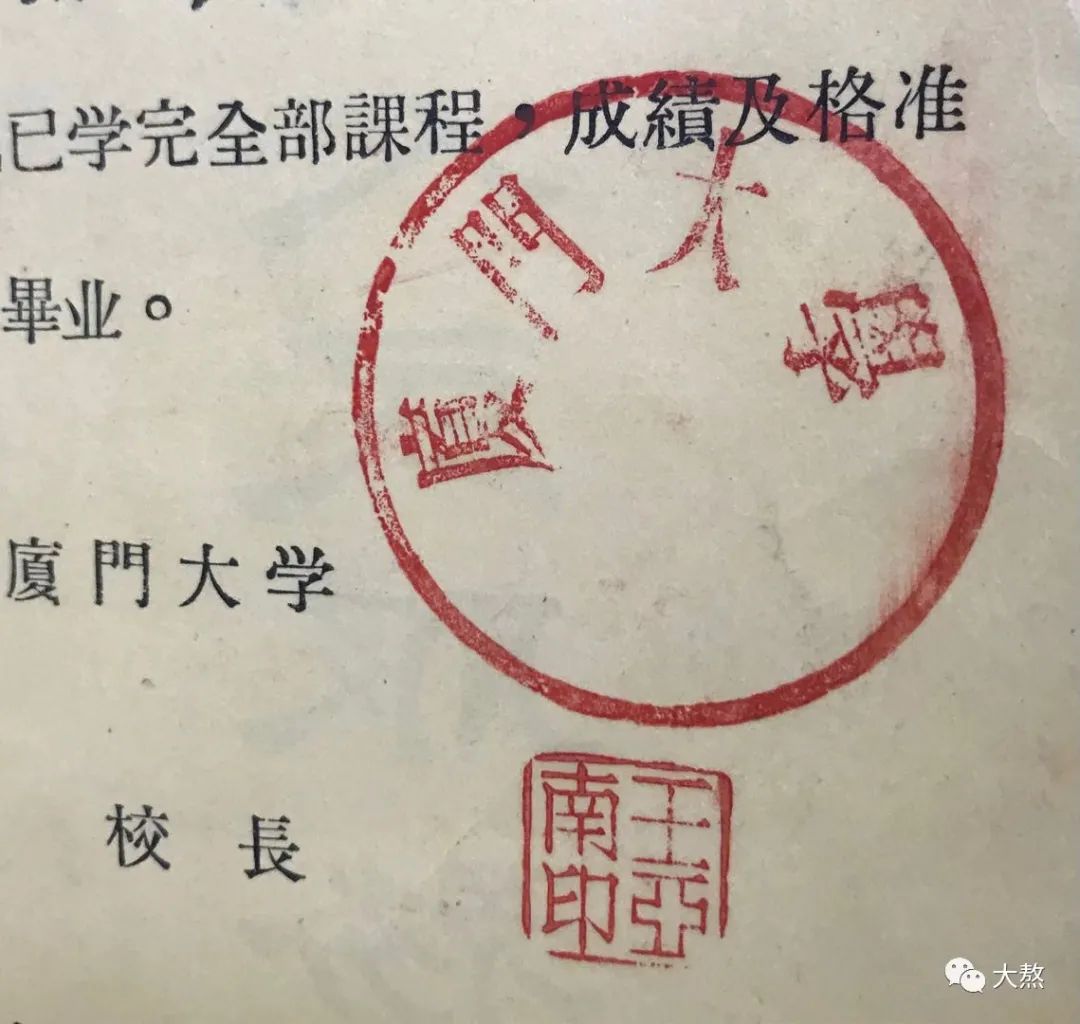 已学完全部課程，成績及格准
畢业。
廈門大學
廈門大学
校長
王亞南印
大熬